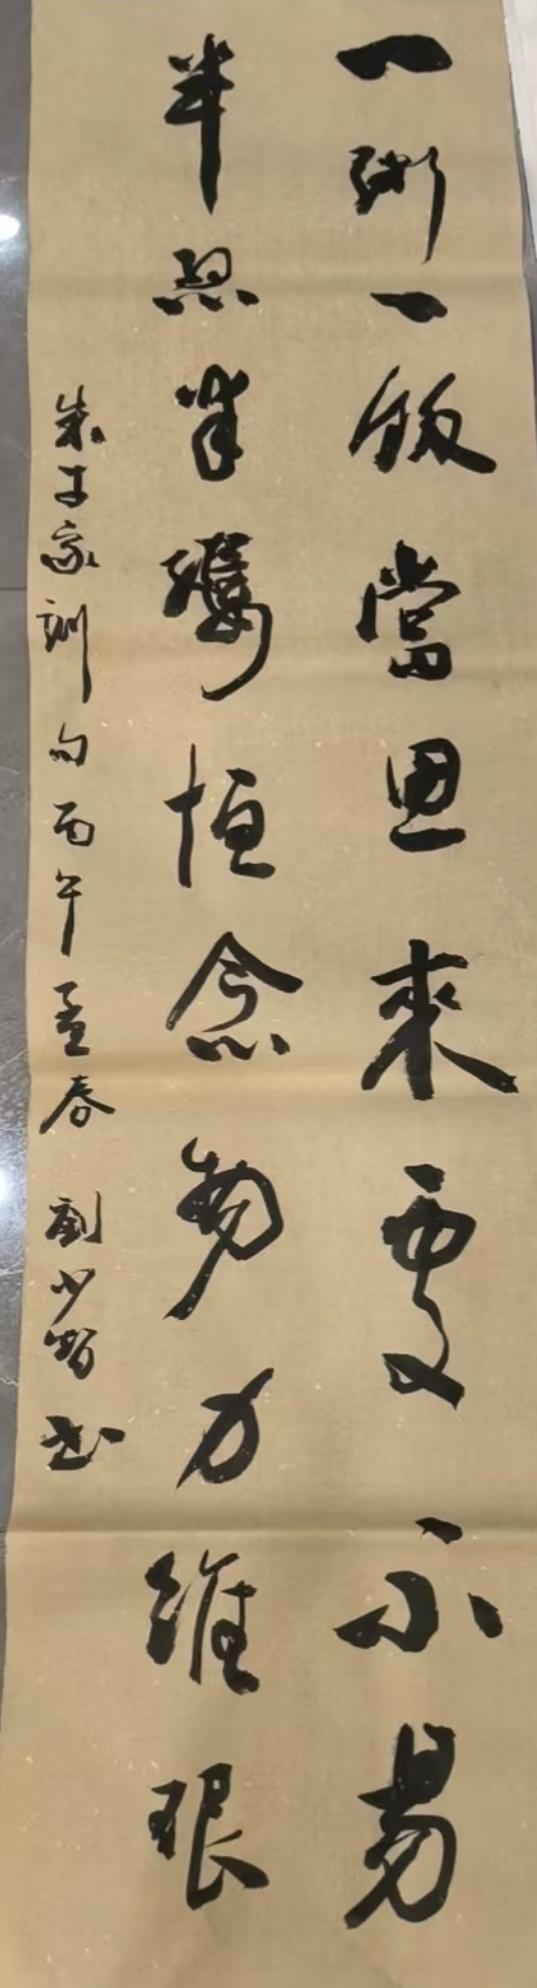 一粥一飯當思來處不易
半絲半縷恒念物力維艱
朱子家訓句丙午孟春 劉少智書